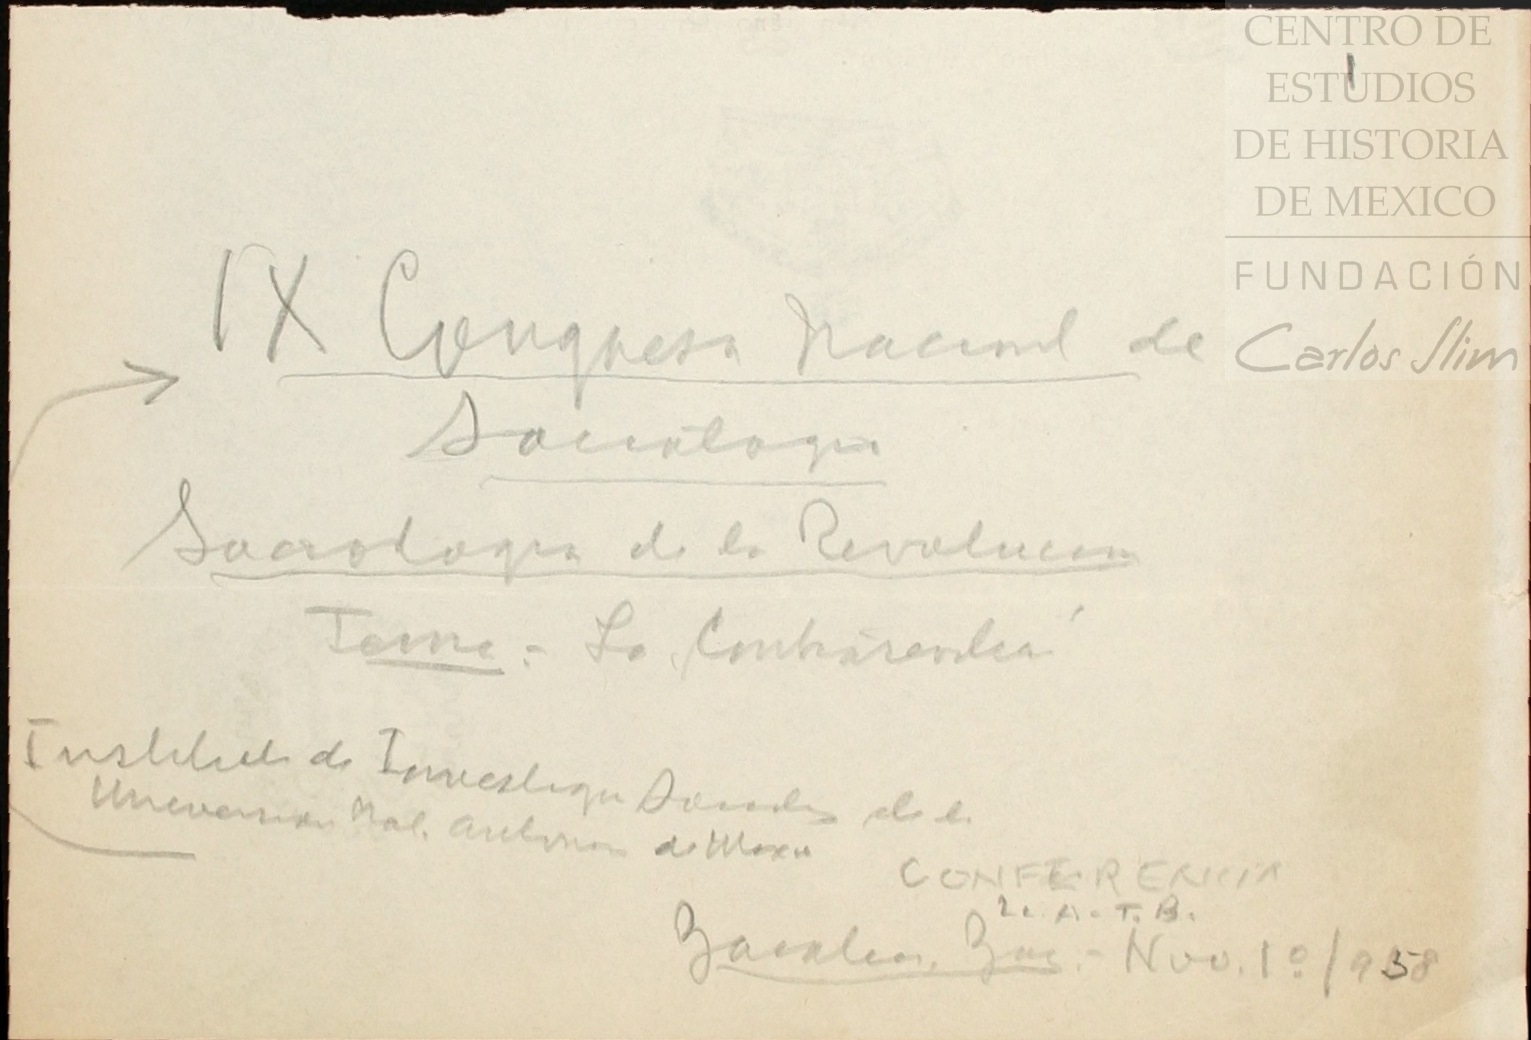 CENTRO DE
ESTUDIOS
DE HISTORIA
DE MEXICO
FUNDACIÓN
Carlos Slim
1
IX Congreso Nacional de
Sociología
Sociologia de la Revolucion
Tema.- La Contrarevolcn
Instituto de Investigs Sociales de la
Universidad Nal. Autonoma de Mexico
CONFERENCIA
A. T. B.
Zacatecas, Zac.- Nov. 1º/958